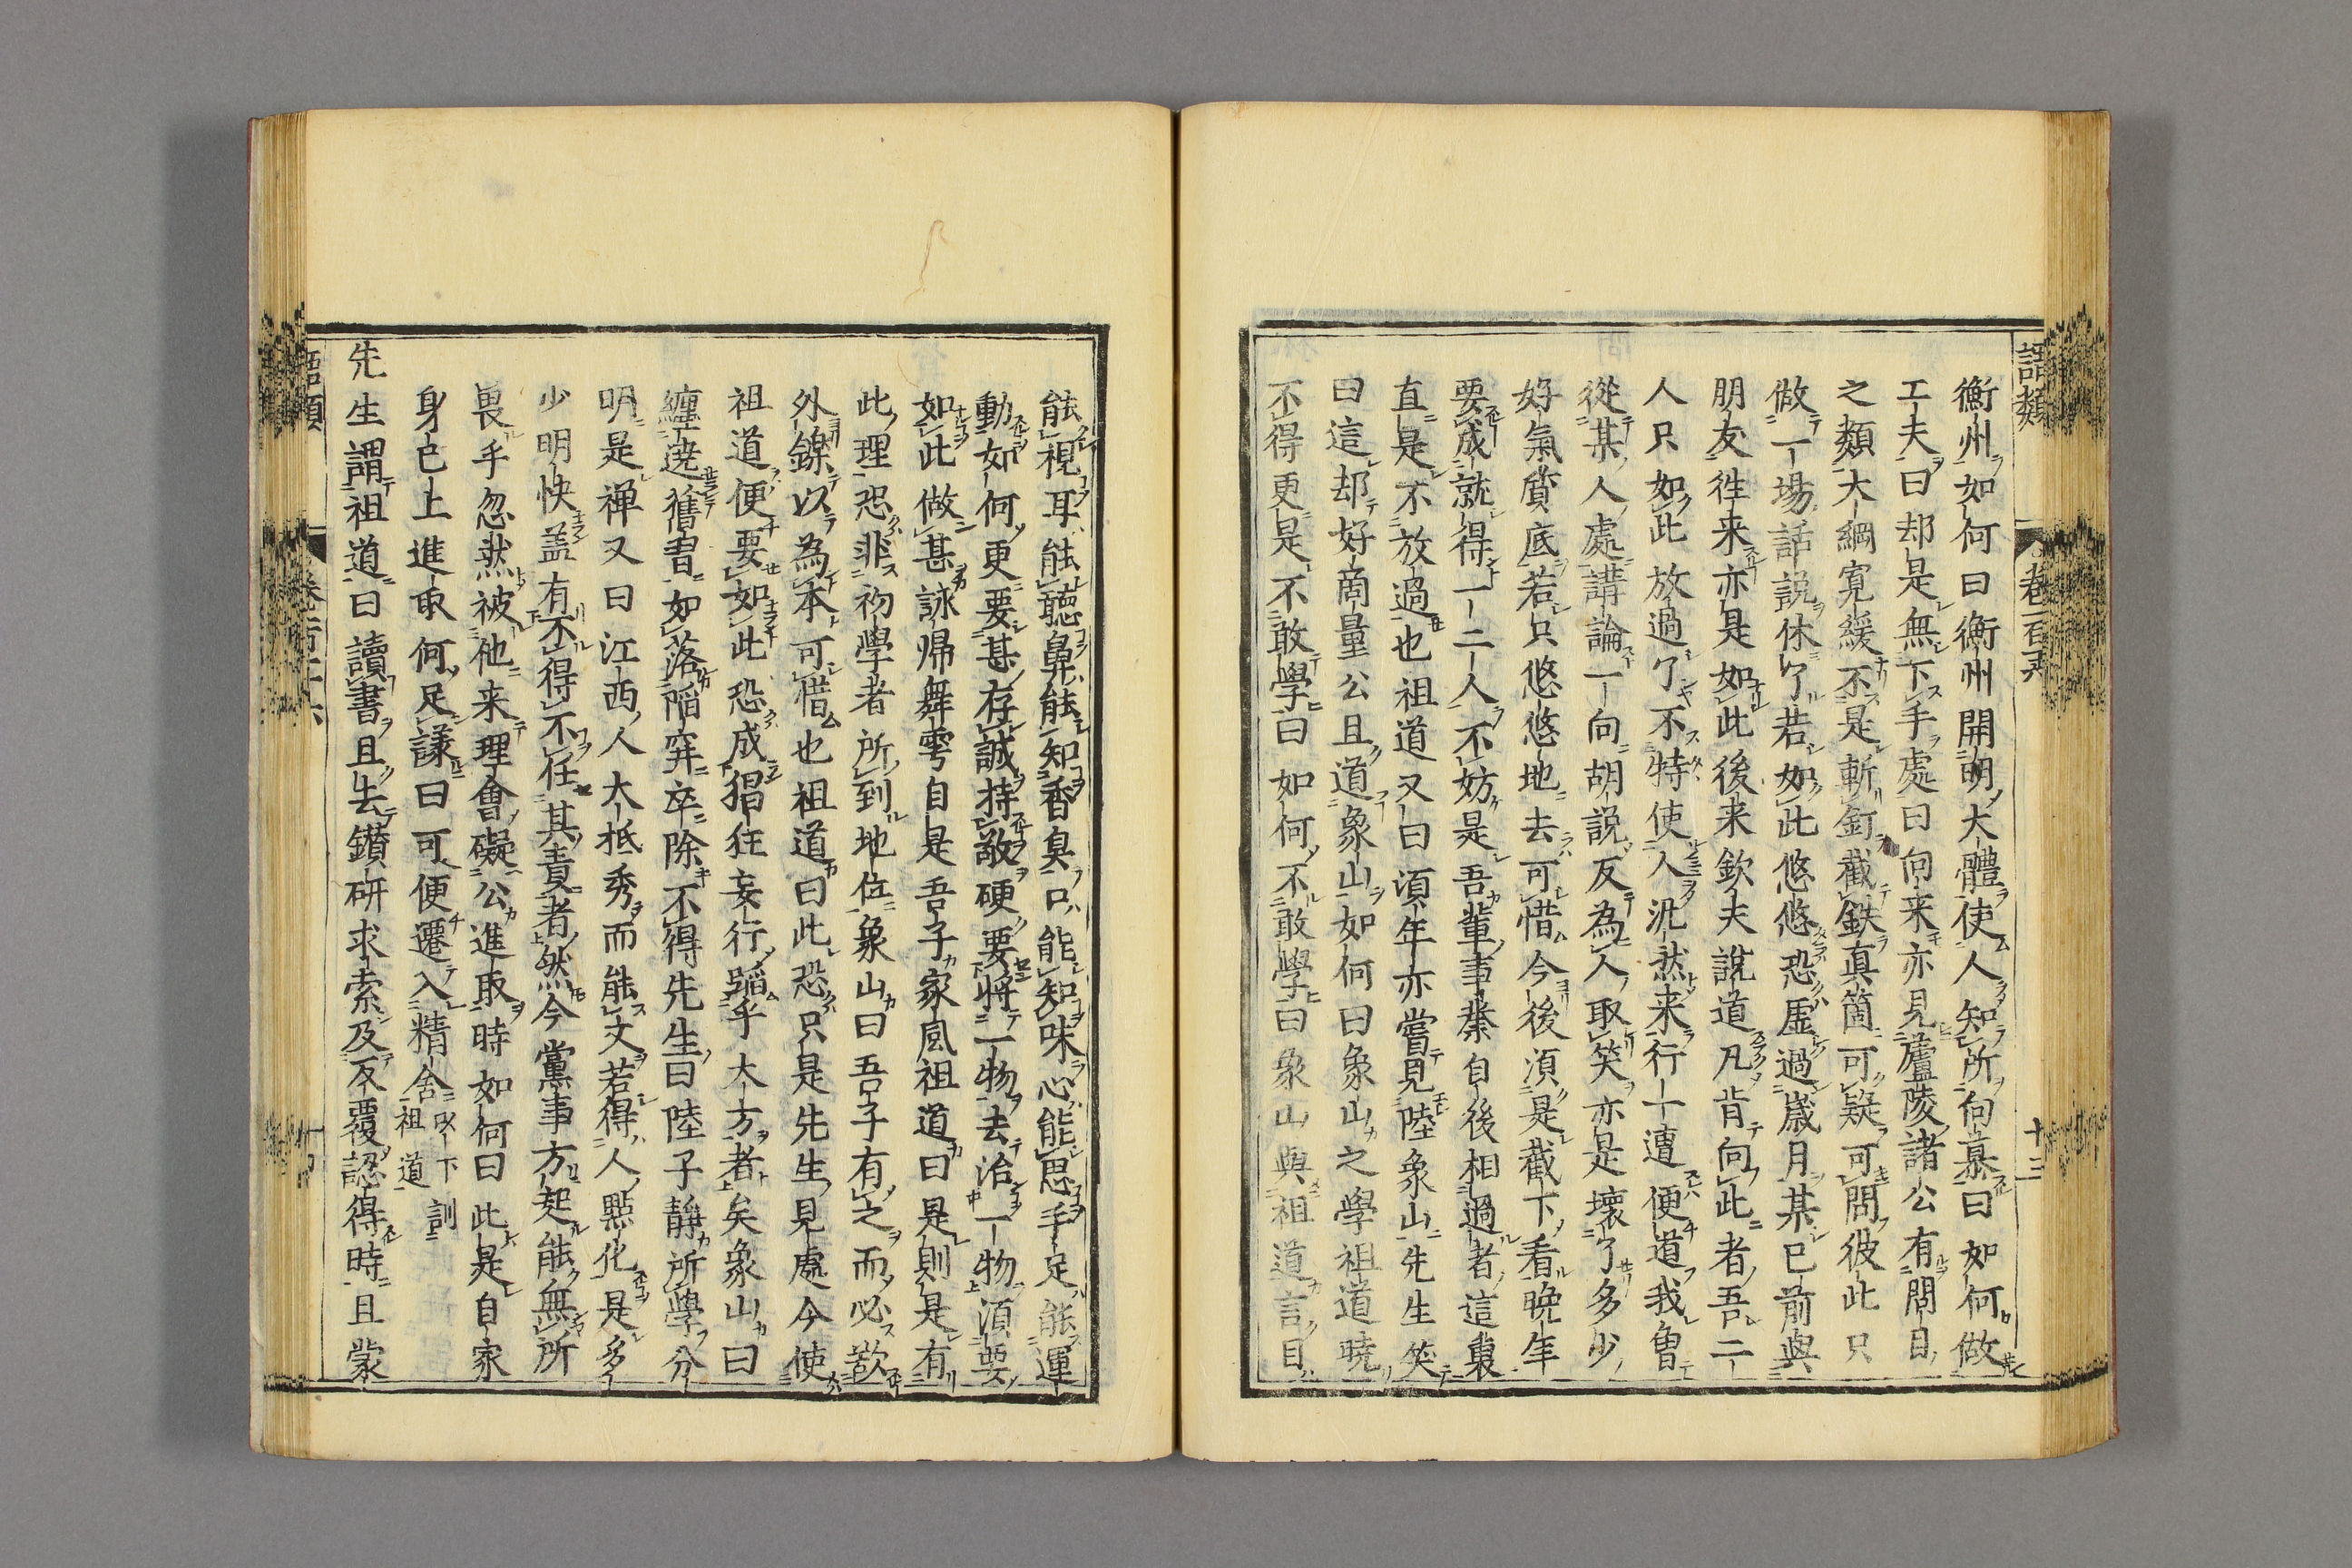 語類 卷一百十六 十三
衡州如何曰衡州開明大體使人知所向慕曰如何做
工夫曰却是無下手處曰向来亦見廬陵諸公有問目
之類大綱寛緩不是斬釘截鉄真箇可疑可問彼此只
做一場話説休了若如此悠悠恐虚過歳月某已前與
朋友徃来亦是如此後来欽夫説道凡肯向此者吾二
人只如此放過了不特使人泛然来行一遭便道我曽
從某人處講論一向胡説反為人取笑亦是壊了多少
好氣質底若只悠悠地去可惜今後湏是截下看晩年
要成就得一二人不妨是吾輩事業自後相過者這裏
直是不放過也祖道又曰頃年亦嘗見陸象山先生笑
曰這却好商量公且道象山如何曰象山之學祖道暁
不得更是不敢學曰如何不敢學曰象山與祖道言目
能視耳能聽鼻能知香臭口能知味心能思手足能運
動如何更要甚存誠持敬硬要將一物去治一物湏要
如此做甚詠帰舞雩自是吾子家風祖道曰是則是有
此理恐非初學者所到地位象山曰吾子有之而必欲
外鑠以為本可惜也祖道曰此恐只是先生見處今使
祖道便要如此恐成猖狂妄行蹈乎大方者矣象山曰
纏遶舊習如落陷穽卒除不得先生曰陸子靜所學分
明是禅又曰江西人大抵秀而能文若得人點化是多
少明快盖有不得不任其責者然今黨事方起能無所
畏乎忽然被他来理會礙公進取時如何曰此是自家
身已上進取何足議曰可便遷入精舍以下訓祖道
先生謂祖道曰讀書且去鑚研求索及反覆認得時且蒙
語類